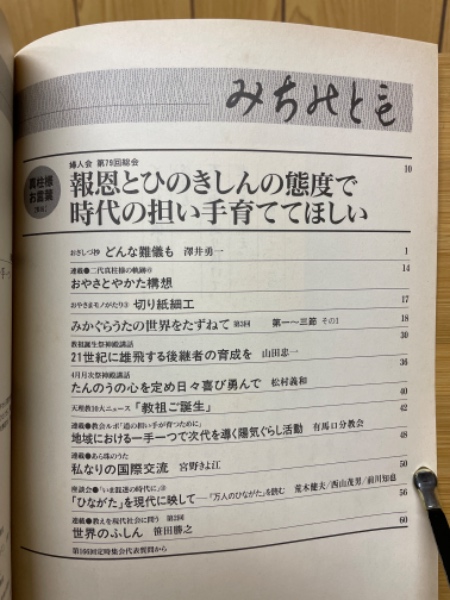 みちのとも
婦人会 第79回総会
真柱様
お言葉
報恩とひのきしんの態度で 10
時代の担い手育ててほしい
おさしづ抄 どんな難儀も 澤井勇一 1
連載●二代真柱様の軌跡 14
おやさとやかた構想
おやさまモノがたり③ 切り紙細工 17
みかぐらうたの世界をたずねて 第3回 第一〜三節 その1 18
教祖誕生祭神殿講話 30
21世紀に雄飛する後継者の育成を 山田忠一
4月月次祭神殿講話 36
たんのうの心を定め日々喜び勇んで 松村義和
天理教10大ニュース 「教祖ご誕生」 40
連載●教会ルポ「道の担い手が育つために」 42
地域における一手一つで次代を導く陽気ぐらし活動 有馬口分教会
連載●あら珠のうた 48
私なりの国際交流 宮野きよ江
座談会●「いま親迷の時代に」② 50
「ひながた」を現代に映して―「万人のひながた」を読む 荒木健夫/西山茂男/前川知也
連載●教えを現代社会に問う 第2回 56
世界のふしん 笹田勝之
第166回定時集会代表質問から 60